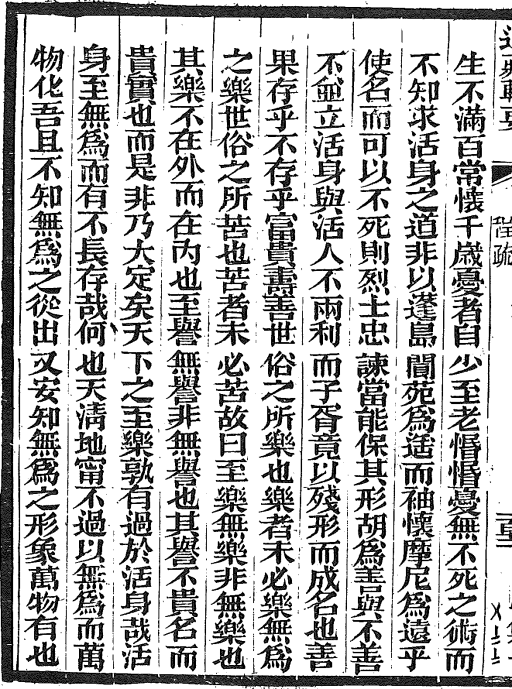 生不滿百常懷千歲憂者自少至老惛惛憂無不死之術而
不知求活身之道非以蓬島閬苑爲迂而袖懷摩尼爲遠乎
使名而可以不死則烈士忠諫當能保其形胡爲善與不善
不並立活身與活人不兩利而子胥竟以殘形而成名也善
果存乎不存乎富貴壽善世俗之所樂也樂者未必樂無爲
之樂世俗之所苦也苦者未必苦故曰至樂無樂非無樂也
其樂不在外而在內也至譽無譽非無譽也其譽不貴名而
貴實也而是非乃大定矣天下之至樂孰有過於活身哉活
身至無爲而有不長存哉何也天淸地甯不過以無爲而萬
物化吾且不知無爲之從出又安知無爲之形象萬物有也